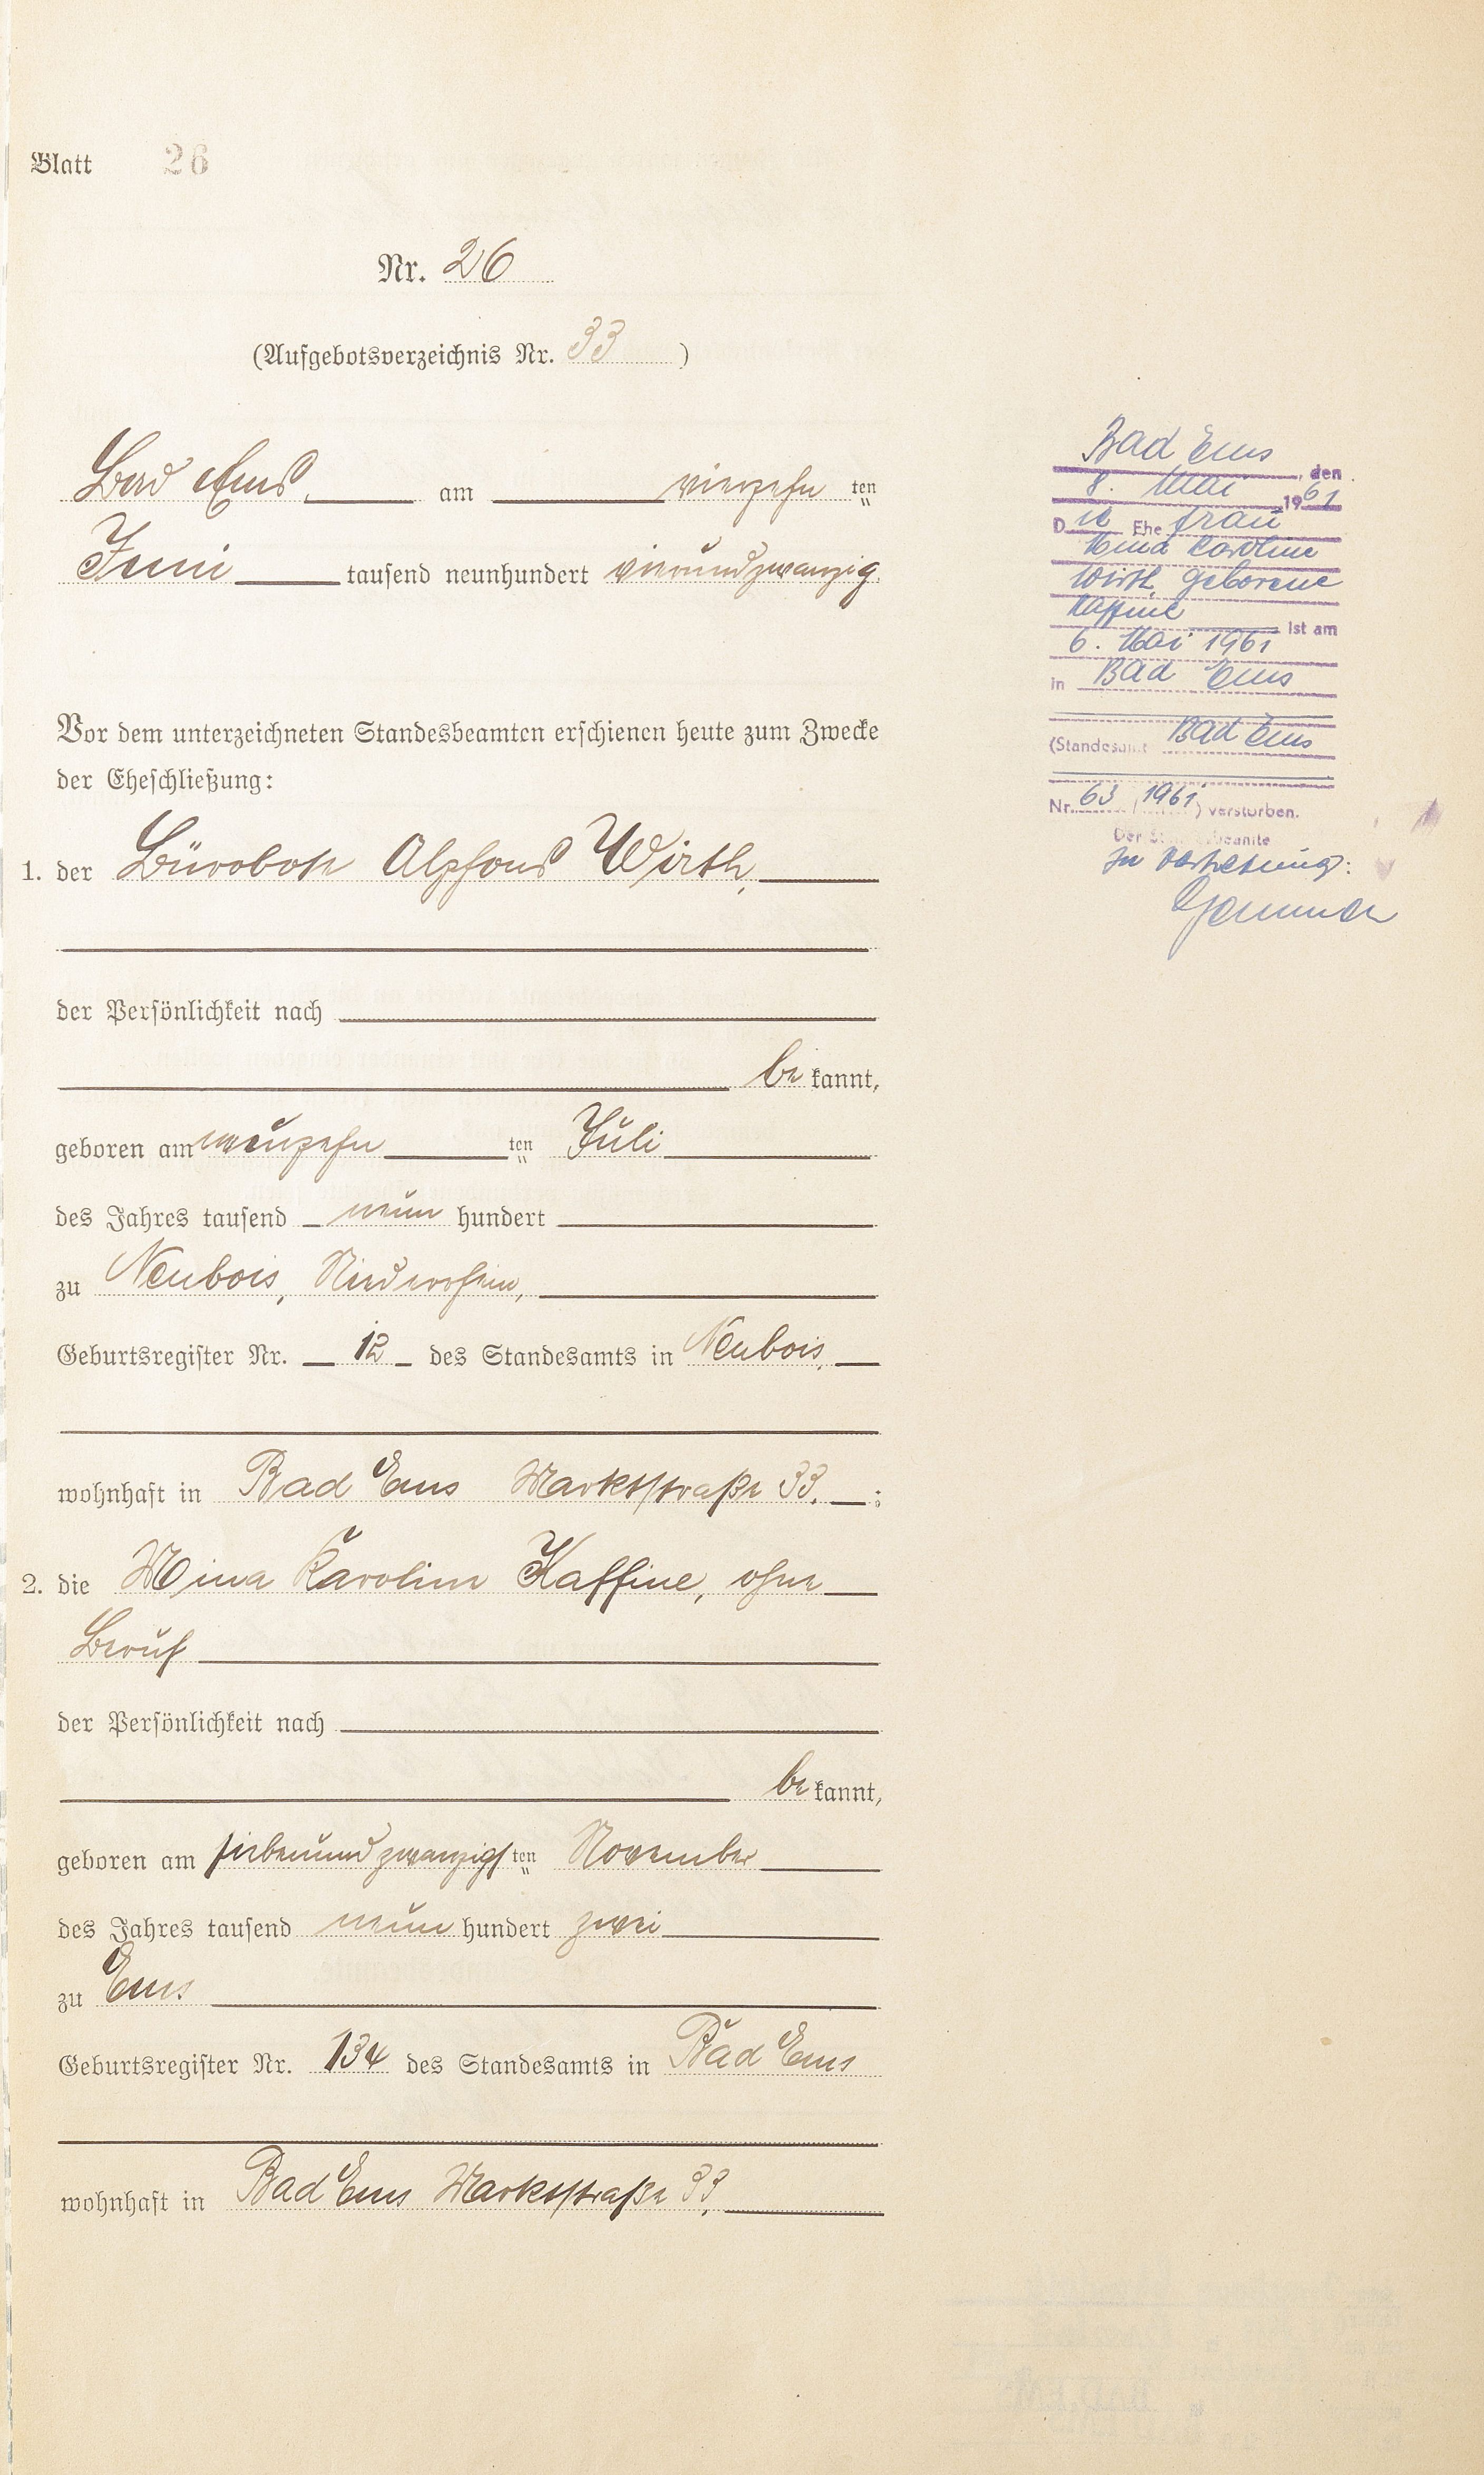 Blatt 26
Nr. 26
(Aufgebotsverzeichnis Nr. 33)
Bad Ems, am vierzehn ten
Juni tausend neunhundert vierundzwanzig.
Vor dem unterzeichneten Standesbeamten erschienen heute zum Zwecke
der Eheschließung:
1. der Bürobote Alphons Wirth,
der Persönlichkeit nach
be kannt,
geboren am neunzehn ten Juli
des Jahres tausend neun hundert
zu Neubois, Niederrhein,
Geburtsregister Nr. 12 des Standesamts in Neubois,
wohnhaft in Bad Ems Marktstraße 33. ;
2. die Mina Karoline Kaffine, ohne
Beruf
der Persönlichkeit nach
be kannt,
geboren am siebenundzwanzigsten November
des Jahres tausend neun hundert zwei
zu Ems
Geburtsregister Nr. 134 des Standesamts in Bad Ems
wohnhaft in Bad Ems Marktstraße 33,
Bad Ems, den
8. Mai 1961
Die Ehefrau
Mina Karoline
Wirth, geborene
Kaffine ist am
6. Mai 1961
in Bad Ems
(Standesamt Bad Ems
Nr. 63 / 1961) verstorben.
Der Standesbeamte
In Vertretung: